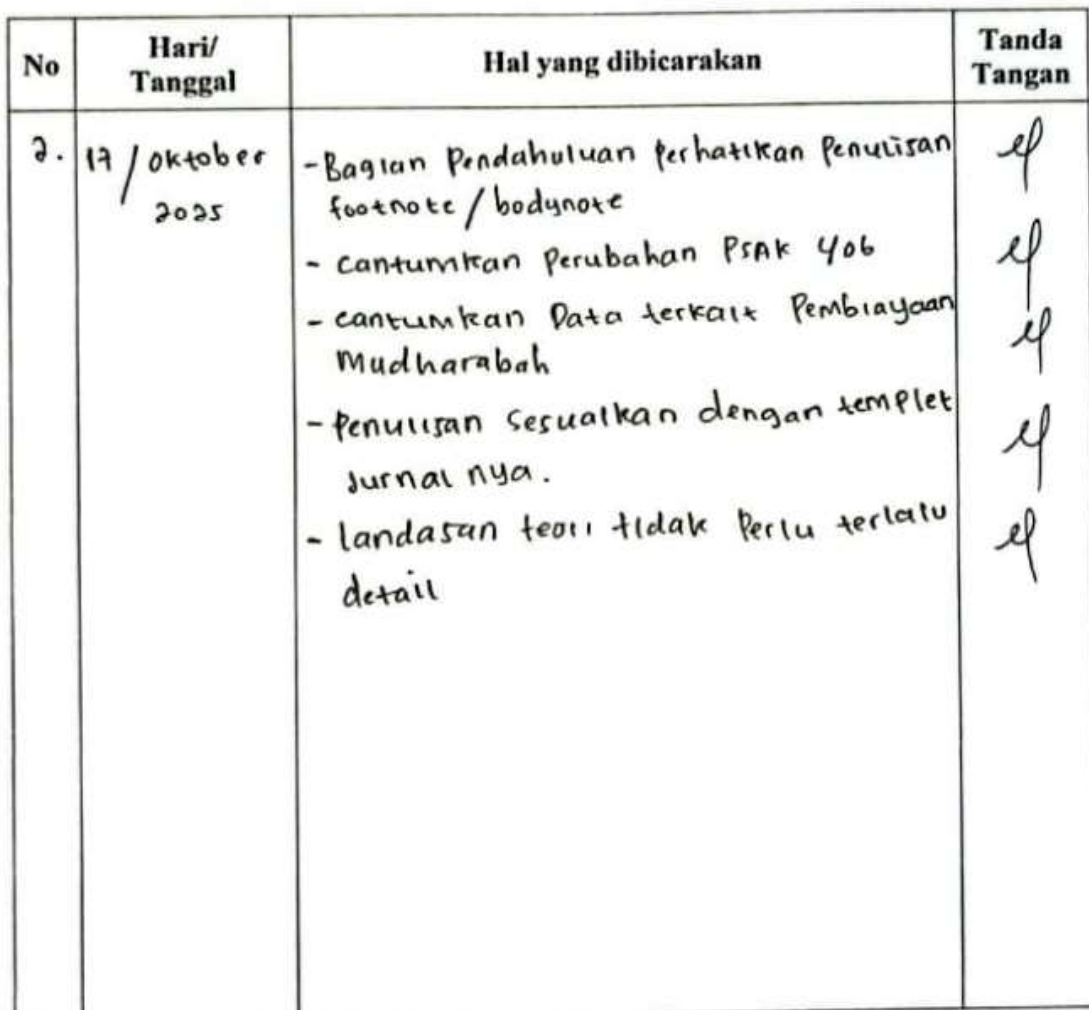 No
Hari/
Tanggal
Hal yang dibicarakan
Tanda
Tangan
2.
17 / Oktober
2025
- Bagian Pendahuluan Perhatikan Penulisan
footnote / bodynote
- cantumkan Perubahan PSAK 406
- cantumkan Data terkait Pembiayaan
Mudharabah
- Penulisan Sesuaikan dengan templet
Jurnal nya.
- landasan teori tidak Perlu terlalu
detail